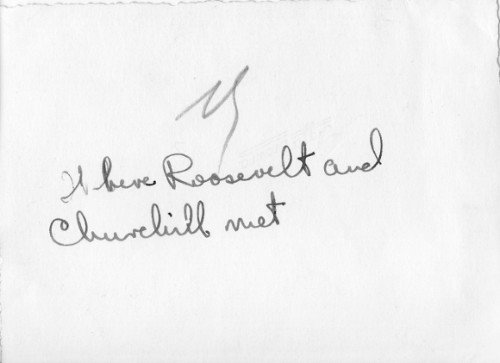 Where Roosevelt and
Churchill met